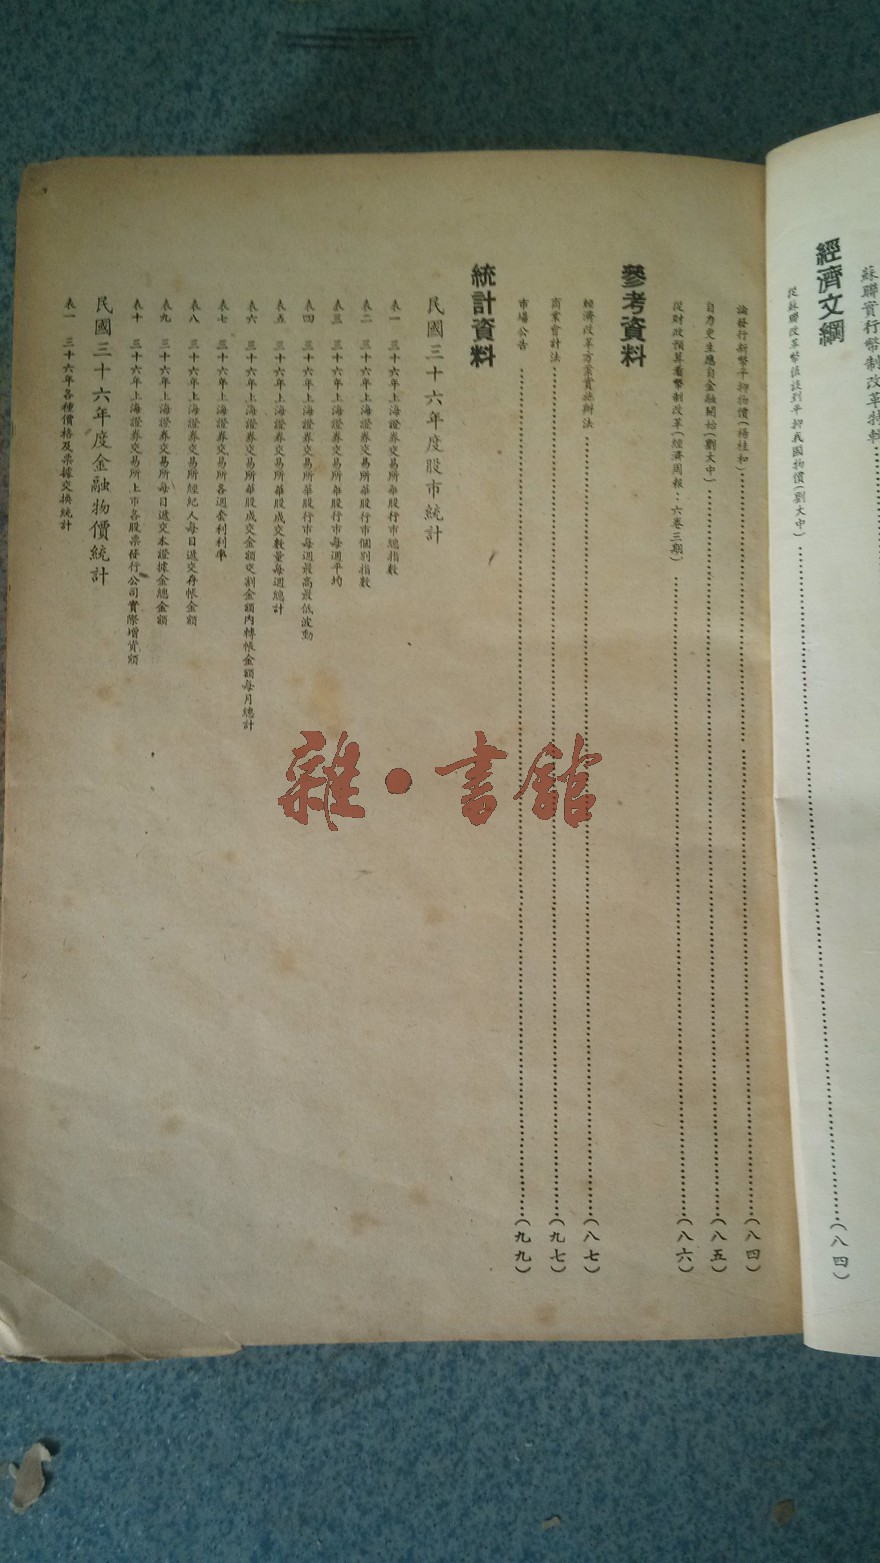 蘇聯實行幣制改革特輯
經濟文綱
從蘇聯改革幣值談到平抑我國物價(劉大中)(八四)
論發行新幣平抑物價(楊桂和)(八四)
自力更生應自金融開始(劉大中)(八五)
從財政預算看幣制改革(經濟周報:六卷三期)(八六)
參考資料
經濟改革方案實施辦法(八七)
商業會計法(九七)
市場公告(九九)
統計資料
民國三十六年度股市統計
表一 三十六年上海證券交易所華股行市總指數
表二 三十六年上海證券交易所華股行市個別指數
表三 三十六年上海證券交易所華股行市每週平均
表四 三十六年上海證券交易所華股行市每週最高最低波動
表五 三十六年上海證券交易所華股成交數量每週總計
表六 三十六年上海證券交易所華股成交金額交割金額內轉帳金額每月總計
表七 三十六年上海證券交易所各週套利利率
表八 三十六年上海證券交易所經紀人每日遞交存帳金額
表九 三十六年上海證券交易所每日遞交本證據金總金額
表十 三十六年上海證券交易所上市各股票發行公司實際增資額
民國三十六年度金融物價統計
表一 三十六年各種價格及票據交換統計
雜·書館